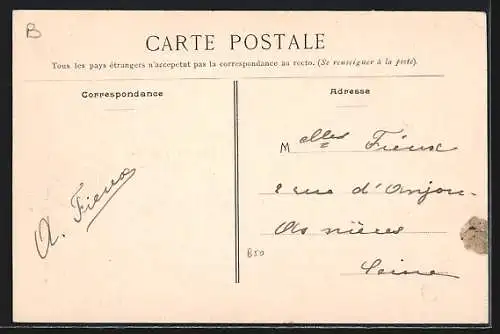 B
CARTE POSTALE
Tous les pays étrangers n'acceptent pas la correspondance au recto. (Se renseigner à la poste).
Correspondance
Adresse
A. Fieux
Melles Fieux
2 rue d'Anjou
Asnières
Seine
B50